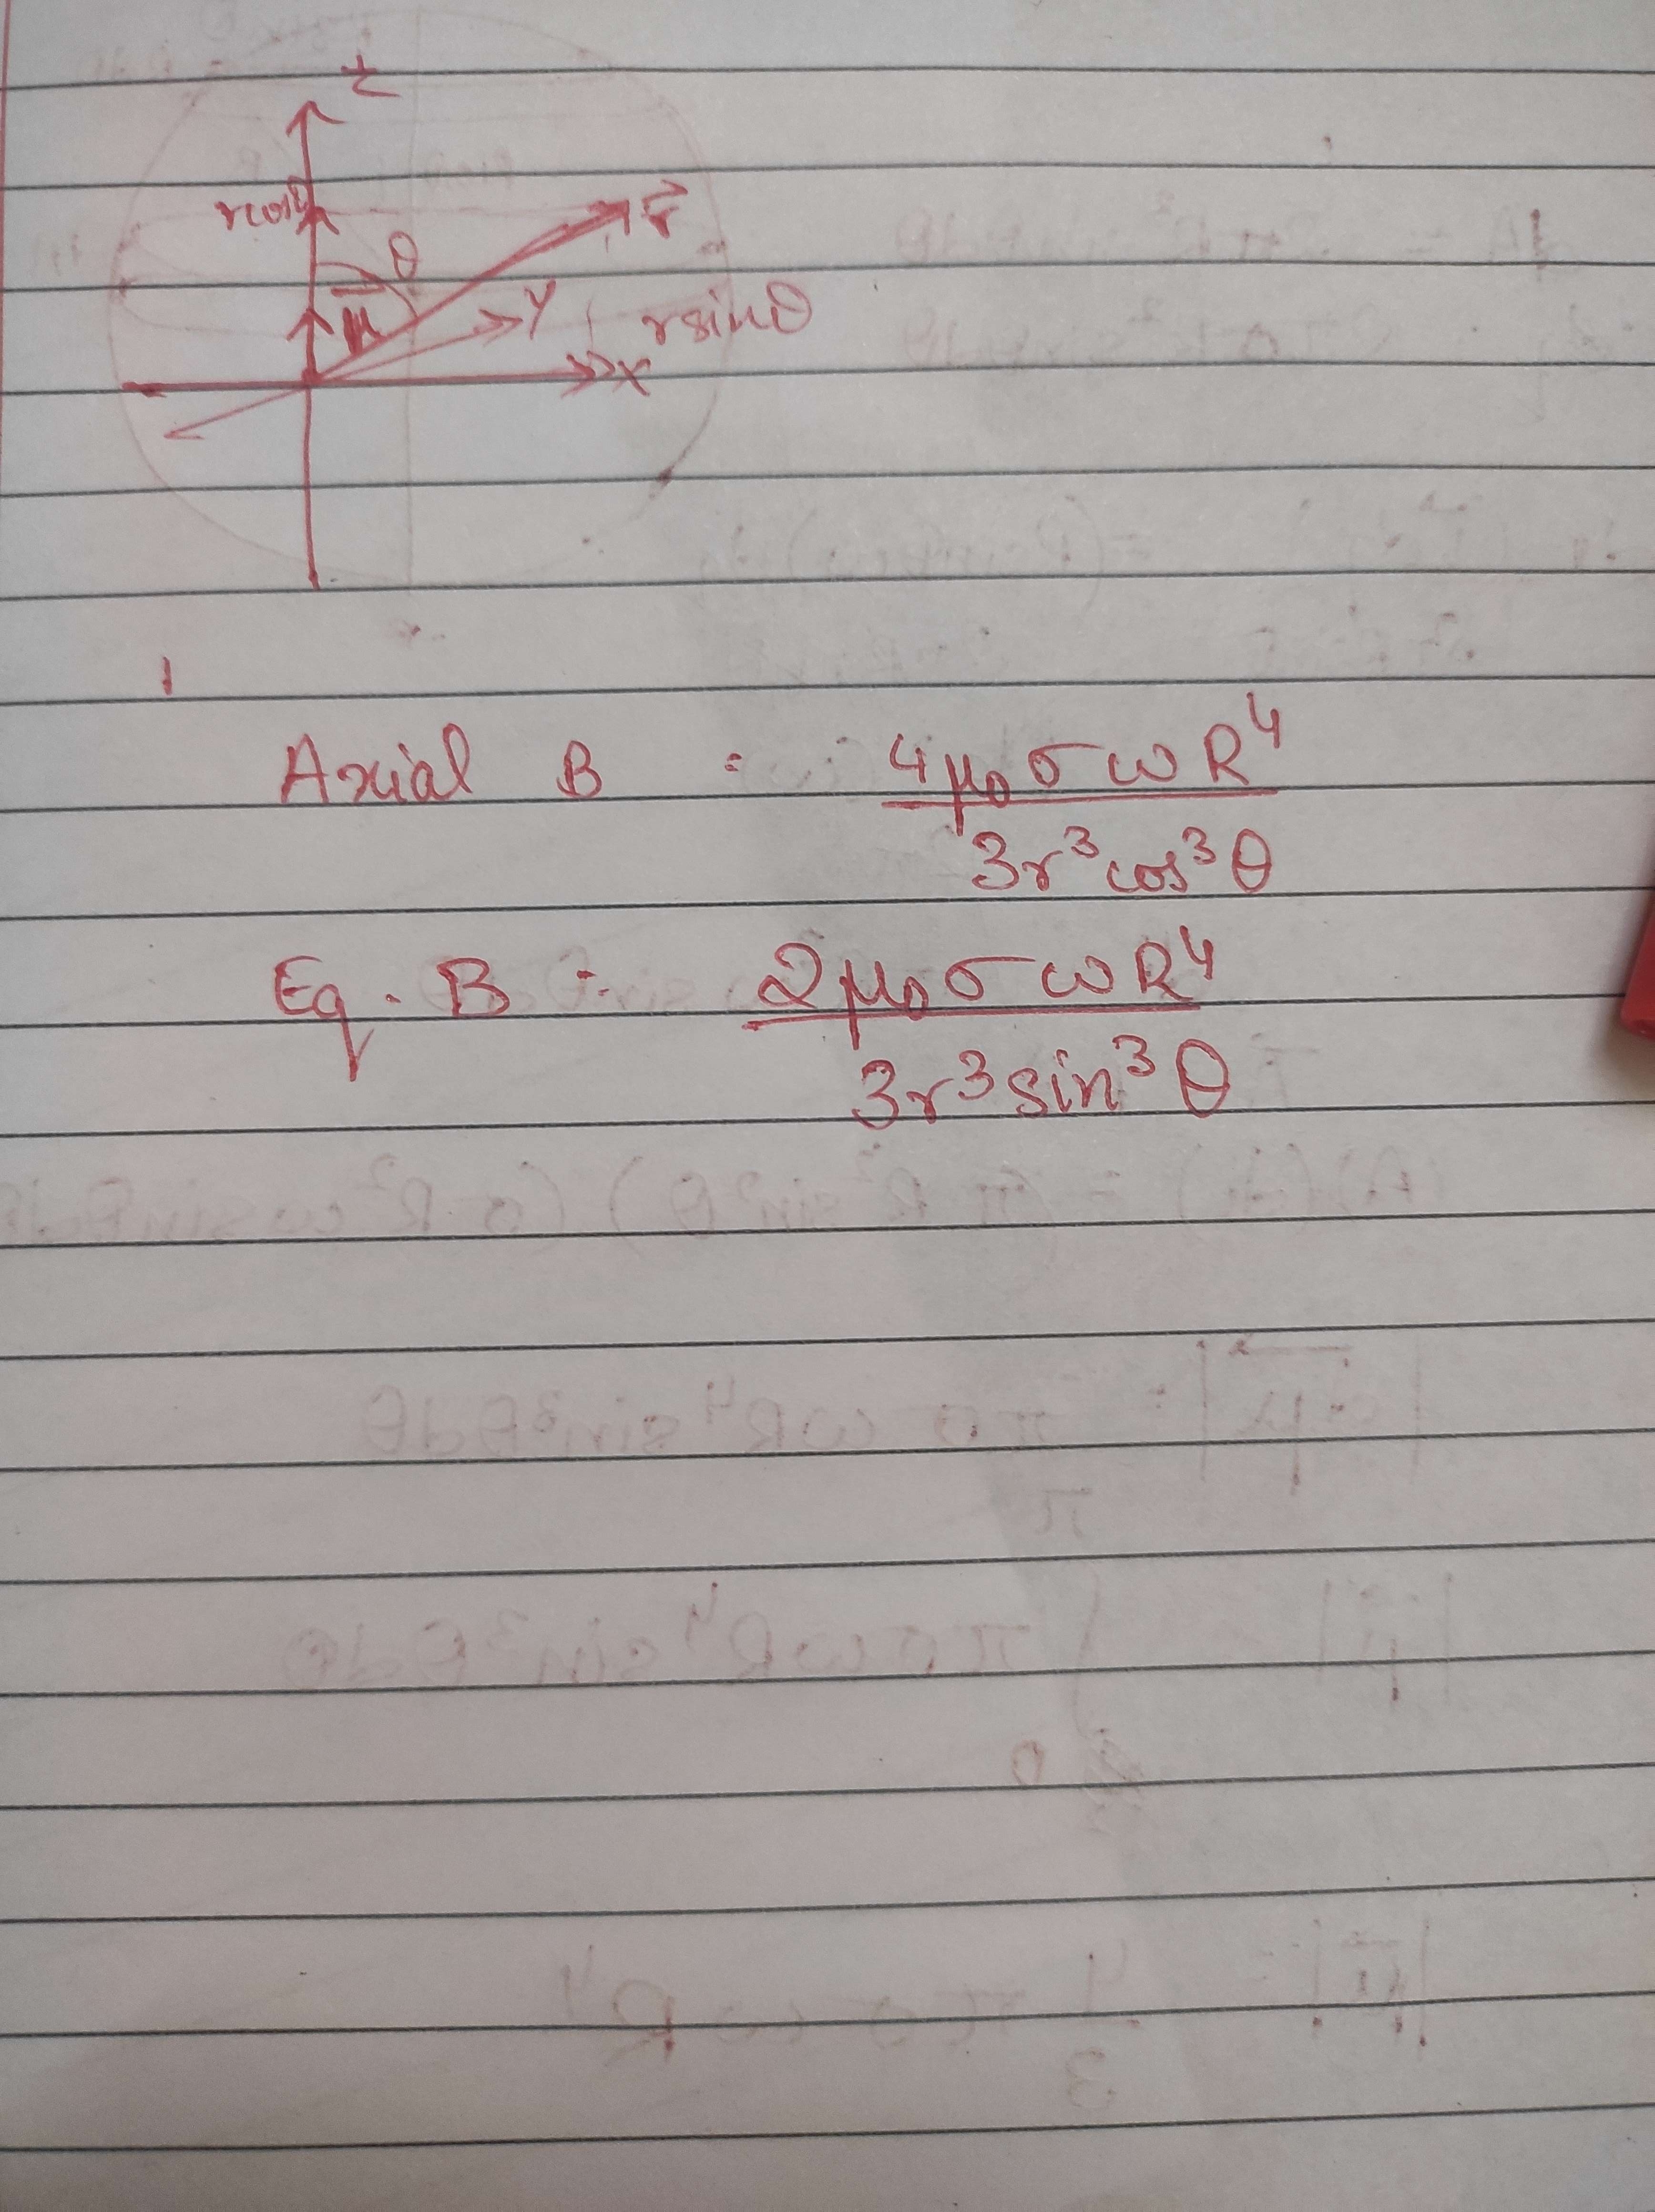 z
r cos θ
θ
r⃗
μ⃗
y
r sin θ
x
Axial B = 4μ₀σωR⁴ / 3r³cos³θ
Eq. B = 2μ₀σωR⁴ / 3r³sin³θ